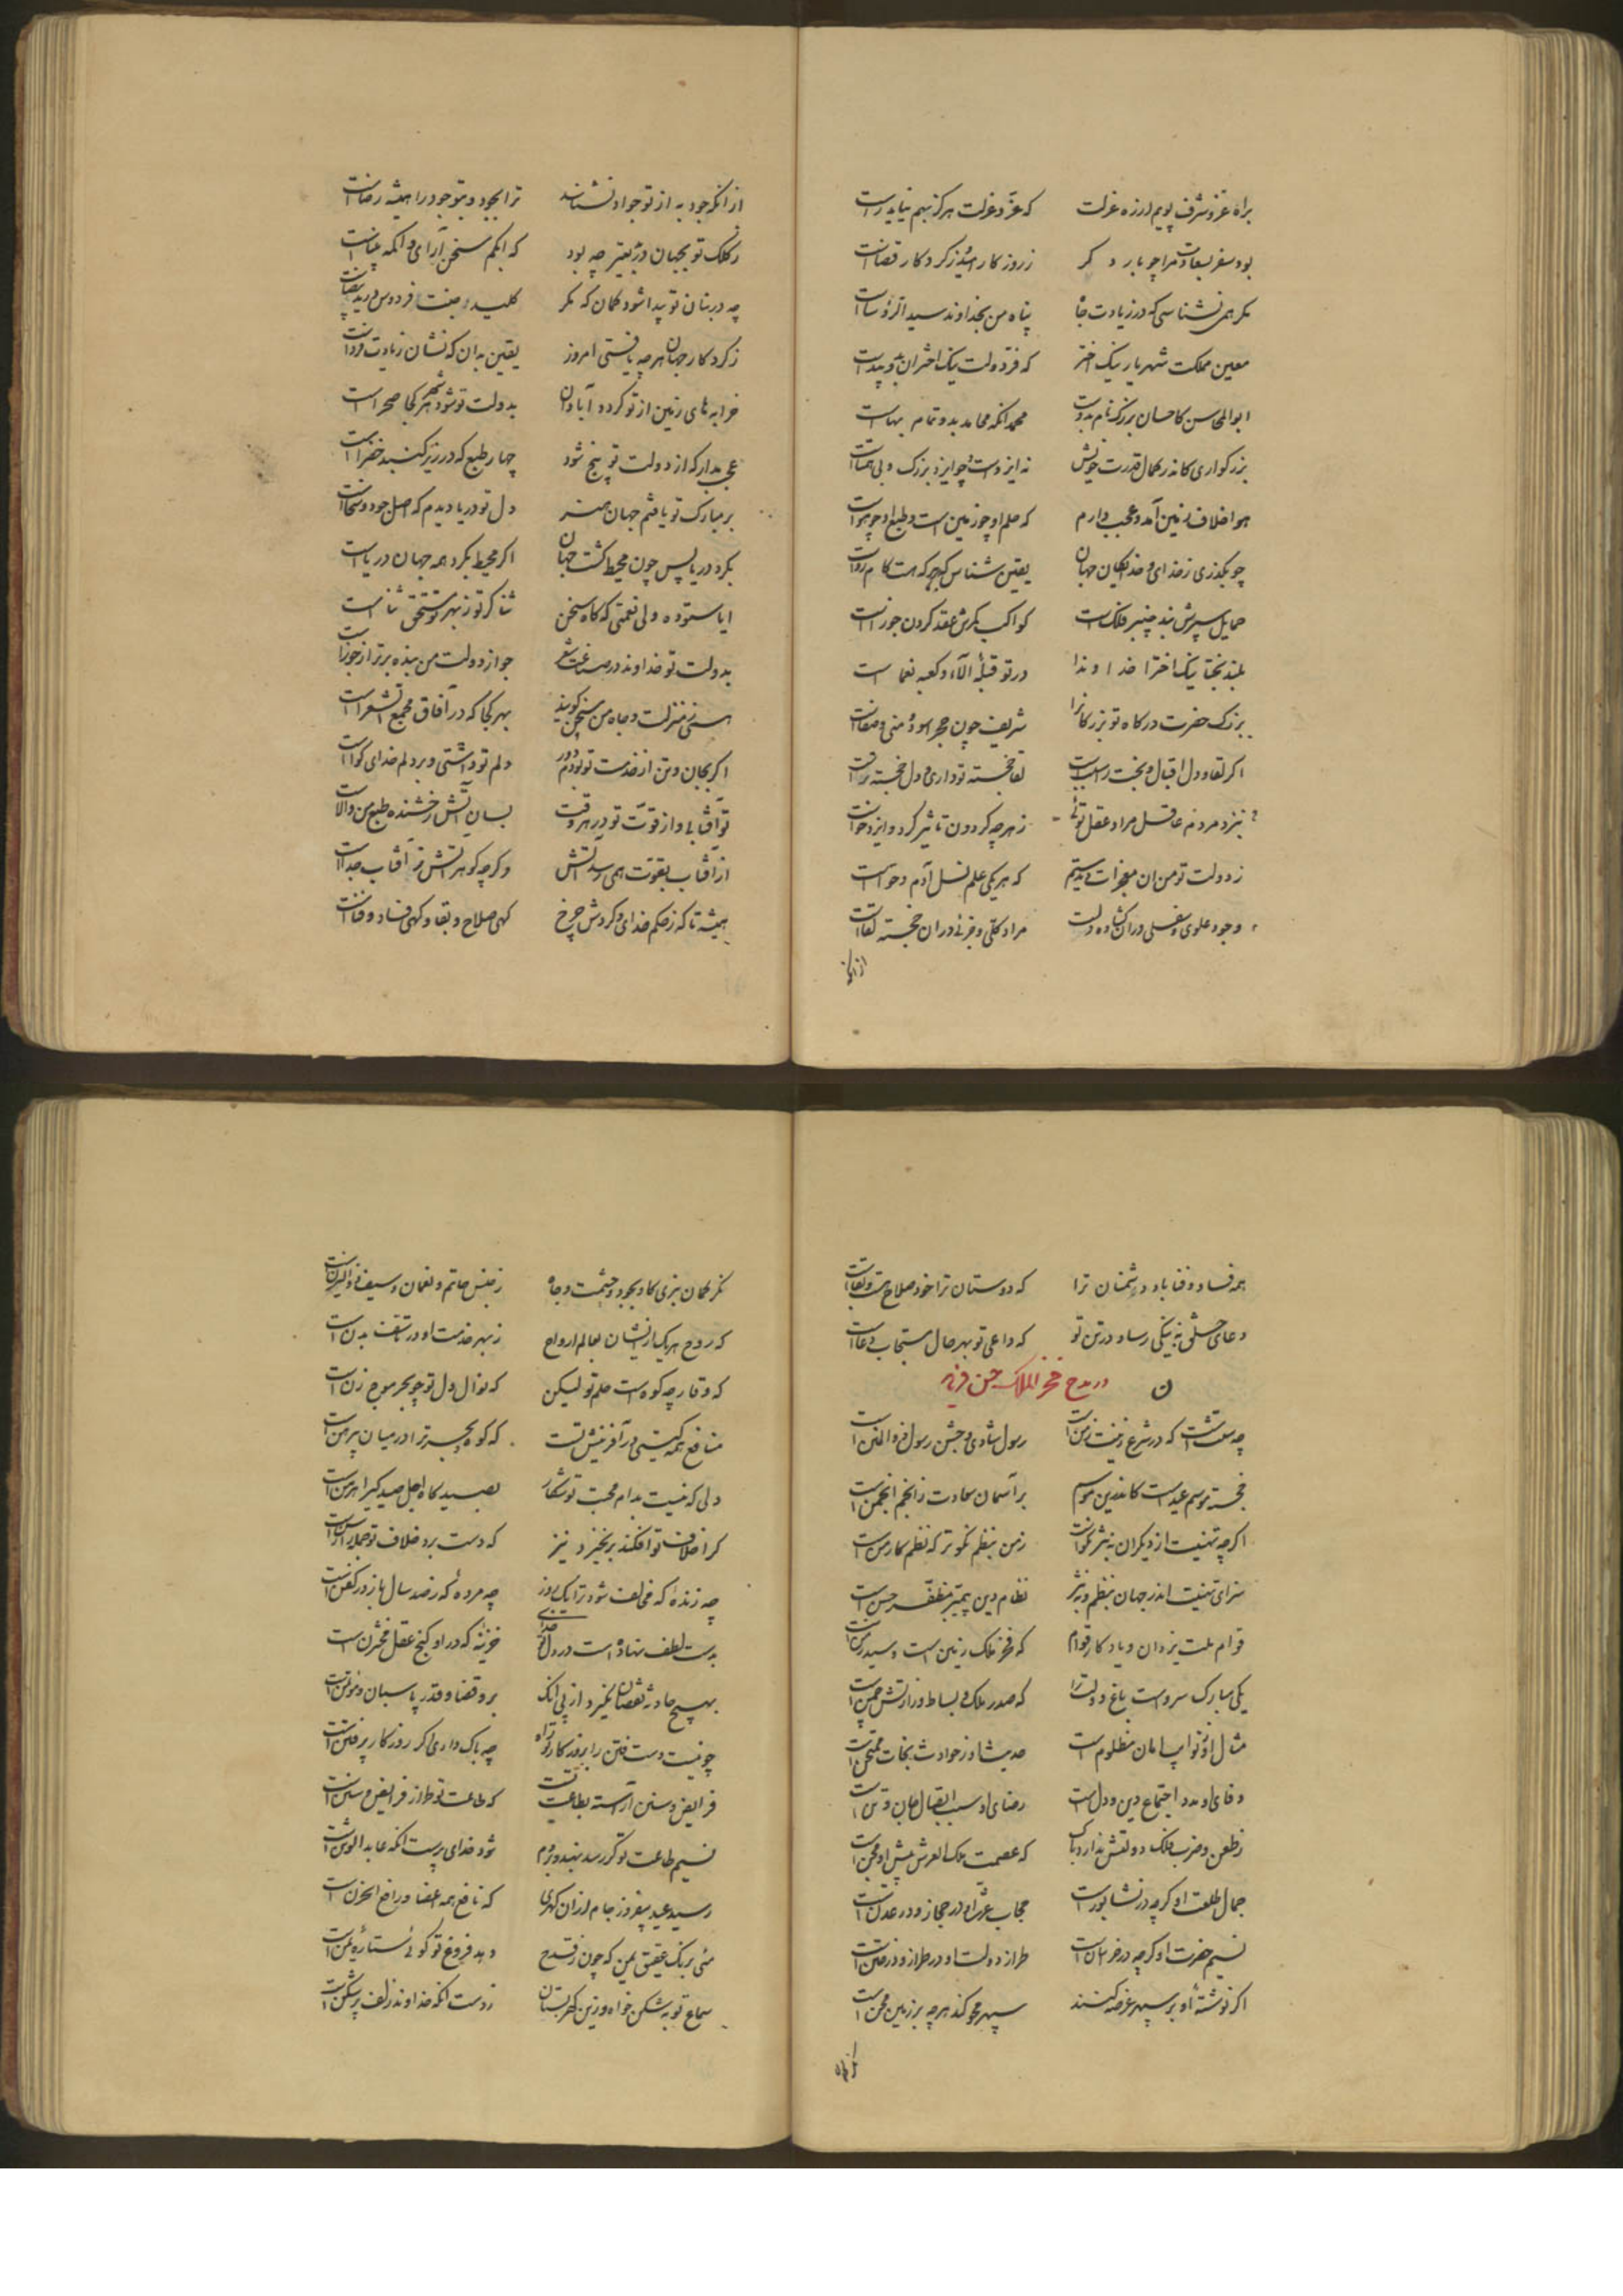 براه عز و شرف پویم ار ره عزلت که عز و عزلت هرگز بهم نیاید راست
بود سفر بسعادت مرا چو بار دگر ز روزگار امید و ز کردکار قضاست
پناه من بخداوند سید الرؤساست
معین مملکت شهریار نیک اختر که فر دولت نیک اختران بدو پیداست
ابوالمحاسن کاحسان بزرک نام بدوست محمد انکه محامد بدو تمام بهاست
بزرکواری کاندر کمال قدرت خویش نه ایزدست و چو ایزد بزرک و بی همتاست
هوا خلاف زمین آمد و عجب دارم که حلم او چو زمین است و طبع او چو هواست
چو بگذری ز خدای و خدایکان جهان یقین شناس که هر چه هست کام رواست
حمایل سپرش بند چنبر فلک است کواکب کمرش عقد کردن جوزاست
بلند بختا نیک اخترا خداوندا در تو قبلهٔ آلا و کعبه نعماست
بزرک حضرت درکاه تو بزرکانرا شریف چون حجر اسود و منی و صفاست
اکر لقا و دل اقبال و بخت را سبب است لقا خجسته تو داری و دل خجسته تراست
بنزد مردم عاقل مراد عقل توئی ز هر چه کردون تاثیر کرد و ایزد خواست
ز دولت تو من ان معجزات دیدستم که هر یکی علم نسل آدم و حواست
وجود علوی و سفلی در ان کشاده دلست مراد کلی و جزئی در ان خجسته لقاست
از انکه
از انکه جود به از تو جواد نشناسد ترا بجود و بتو جود را همیشه رضاست
ز کلک تو بجهان در بدیعتر چه بود که ابکم سخن آرای و اکمه بیناست
چه در بنان تو پیدا شود کمان که مکر کلید هشت فردوس در ید بیضاست
ز کردکار جهان هر چه یافتی امروز یقین بدان که نشان زیادت فرداست
خرابه های زمین از تو کردد آبادان بدولت تو شود شهر هر کجا صحراست
عجب مدار که از دولت تو پنج شود چهار طبع که در زیر کنبد خضراست
بر مبارک تو یافتم جهان هنر دل تو دریا دیدم که اصل جود و سخاست
بکرد دریا پس چون محیط کشت جهان اکر محیط بکرد همه جهان دریاست
ایا ستوده ولی نعمتی که کاه سخن ثنا کر تو ز بهر تو مستحق ثناست
بدولت تو خداوند در صناعت شعر جواز دولت من بنده برتر از جوزاست
همی ز منزلت و جاه من سخن کویند بهر کجا که در آفاق مجمع الشعراست
اکر بجان و تن از خدمت تو بودم دور دلم تو داشتی و بر دلم خدای کواست
تو آفتابی و از قوت تو در هر وقت بسان آتش رخشنده طبع من والاست
از آفتاب بقوت همی رسد آتش وکرچه کوهر آتش ز آفتاب جداست
همیشه تا که ز حکم خدای و کردش چرخ کهی صلاح و بقا و کهی فساد و فناست
همه فساد و فنا باد دشمنان ترا که دوستان ترا خود صلاح هست و بقاست
دعای خلق به نیکی رساد در تن تو که داعی تو بهر حال مستجاب دعاست
در مدح فخر الملک حسن فرماید
چه سعتست که در شرع زینت زمن است رسول شادی و جشن رسول ذو المنن است
خجسته موسم عید است کاندرین موسم بر آسمان سعادت ز انجم انجمن است
اکرچه تهنیت از دیکران به نثر نکوست ز من بنظم نکوتر که نظم کار من است
سزای تهنیت اندر جهان بنظم و نثر نظام دین پیمبر مظفر حسن است
قوام ملت یزدان و یادکار قوام که فخر ملک زمین است و سید زمن است
یکی مبارک سروست باغ دولت را که صدر ملک و بساط وزارتش چمن است
مثال او بنوایب امان مظلوم است حدیث او ز حوادث نجات ممتحن است
وفای او مدد اجتماع دین و دل است رضای او سبب اتصال جان و تن است
ز طعن و ضرب فلک دولتش ندارد باک که عصمت ملک العرش پیش او مجن است
جمال طلعت او کرچه در نشابورست حجاب عزش او در حجاز و در عدن است
نسیم حضرت او کرچه در خراسان است طراز دولت او در طراز و در ختن است
اکر نوشتهٔ او بر سپهر عرضه کنند سپهر محو کند هر چه بر زمین محن است
مکر کمان بری کاو بجود و حشمت و جاه ز جنس حاتم و نعمان و سیف ذو الیزن است
که روح هر یک از ایشان بعالم ارواح ز بهر خدمت او در تأسف بدن است
که وقار چه کوه است حلم تو لیکن که نوال دل تو چو بحر موج زن است
منافع همه کیتی در آفرینش تست که کوه و بحر ترا در میان پیرهن است
دلی که نیست بدام محبت تو شکار بصیدگاه اجل صید کیر اهرمن است
کرا خلاف تو افکند بر نخیزد نیز که دستبرد خلاف تو
چه زنده که مخالف شود ترا یک روز چه مردهٔ که ز صد سال باز در کفن است
بدست لطف نهادست در دل تو خدای خزینهٔ که در او کنج عقل مختزن است
بهیچ حادثه نقصان نکیرد از پی انک برو قضا و قدر پاسبان و مؤتمن است
چو نیست دست فتن را بروزکار تو راه چه باک داری اکر روزکار پر فتن است
فرایض و سنن آراسته بطاعت تست که طاعت تو طراز فرایض و سنن است
نسیم طاعت تو کر رسد بهند و بروم شود خدای پرست انکه عابد الوثن است
رسید عید بیفروز جام از ان کهری که نافع همه اعضا و رافع الحزن است
مئی برنک عقیق یمن که چون ز قدح دهد فروغ تو کوئی ستارهٔ یمن است
سماع توبه شکن خواه و زین کهر بستان ز دست انکه خداوند زلف پرشکن است